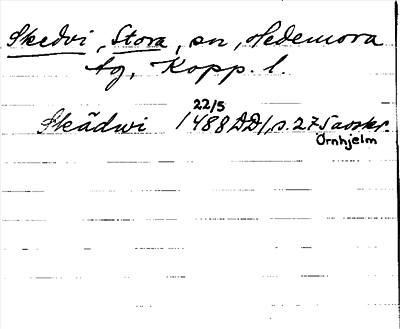 Skedvi, Stora, sn, Hedemora
tg, Kopp. l.
22/5
Skädwi 1488 DD1, s. 275 avskr.
Örnhjelm